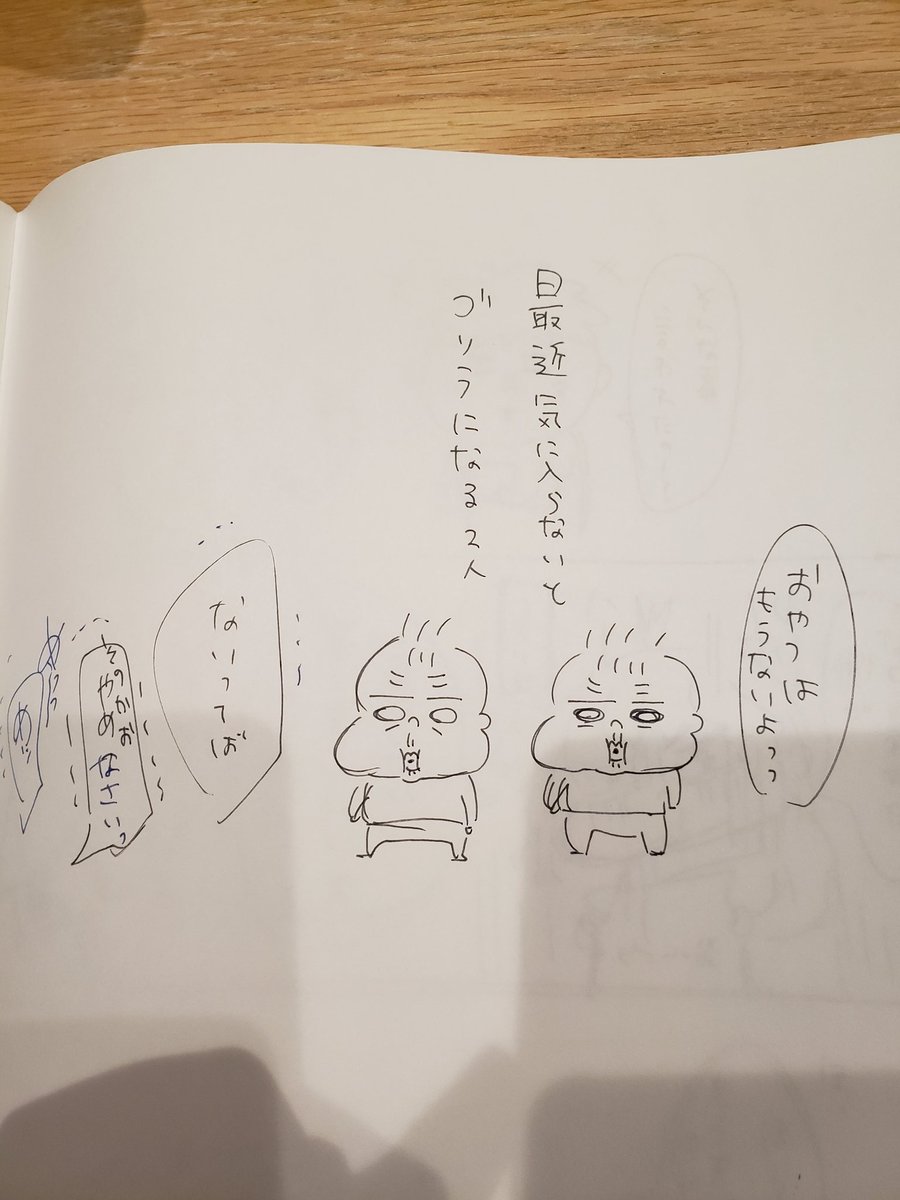 おやつは
もうないよっっ
最近気に入らないと
ゴリラになる2人
ないってば
そのかお
やめなさいっ